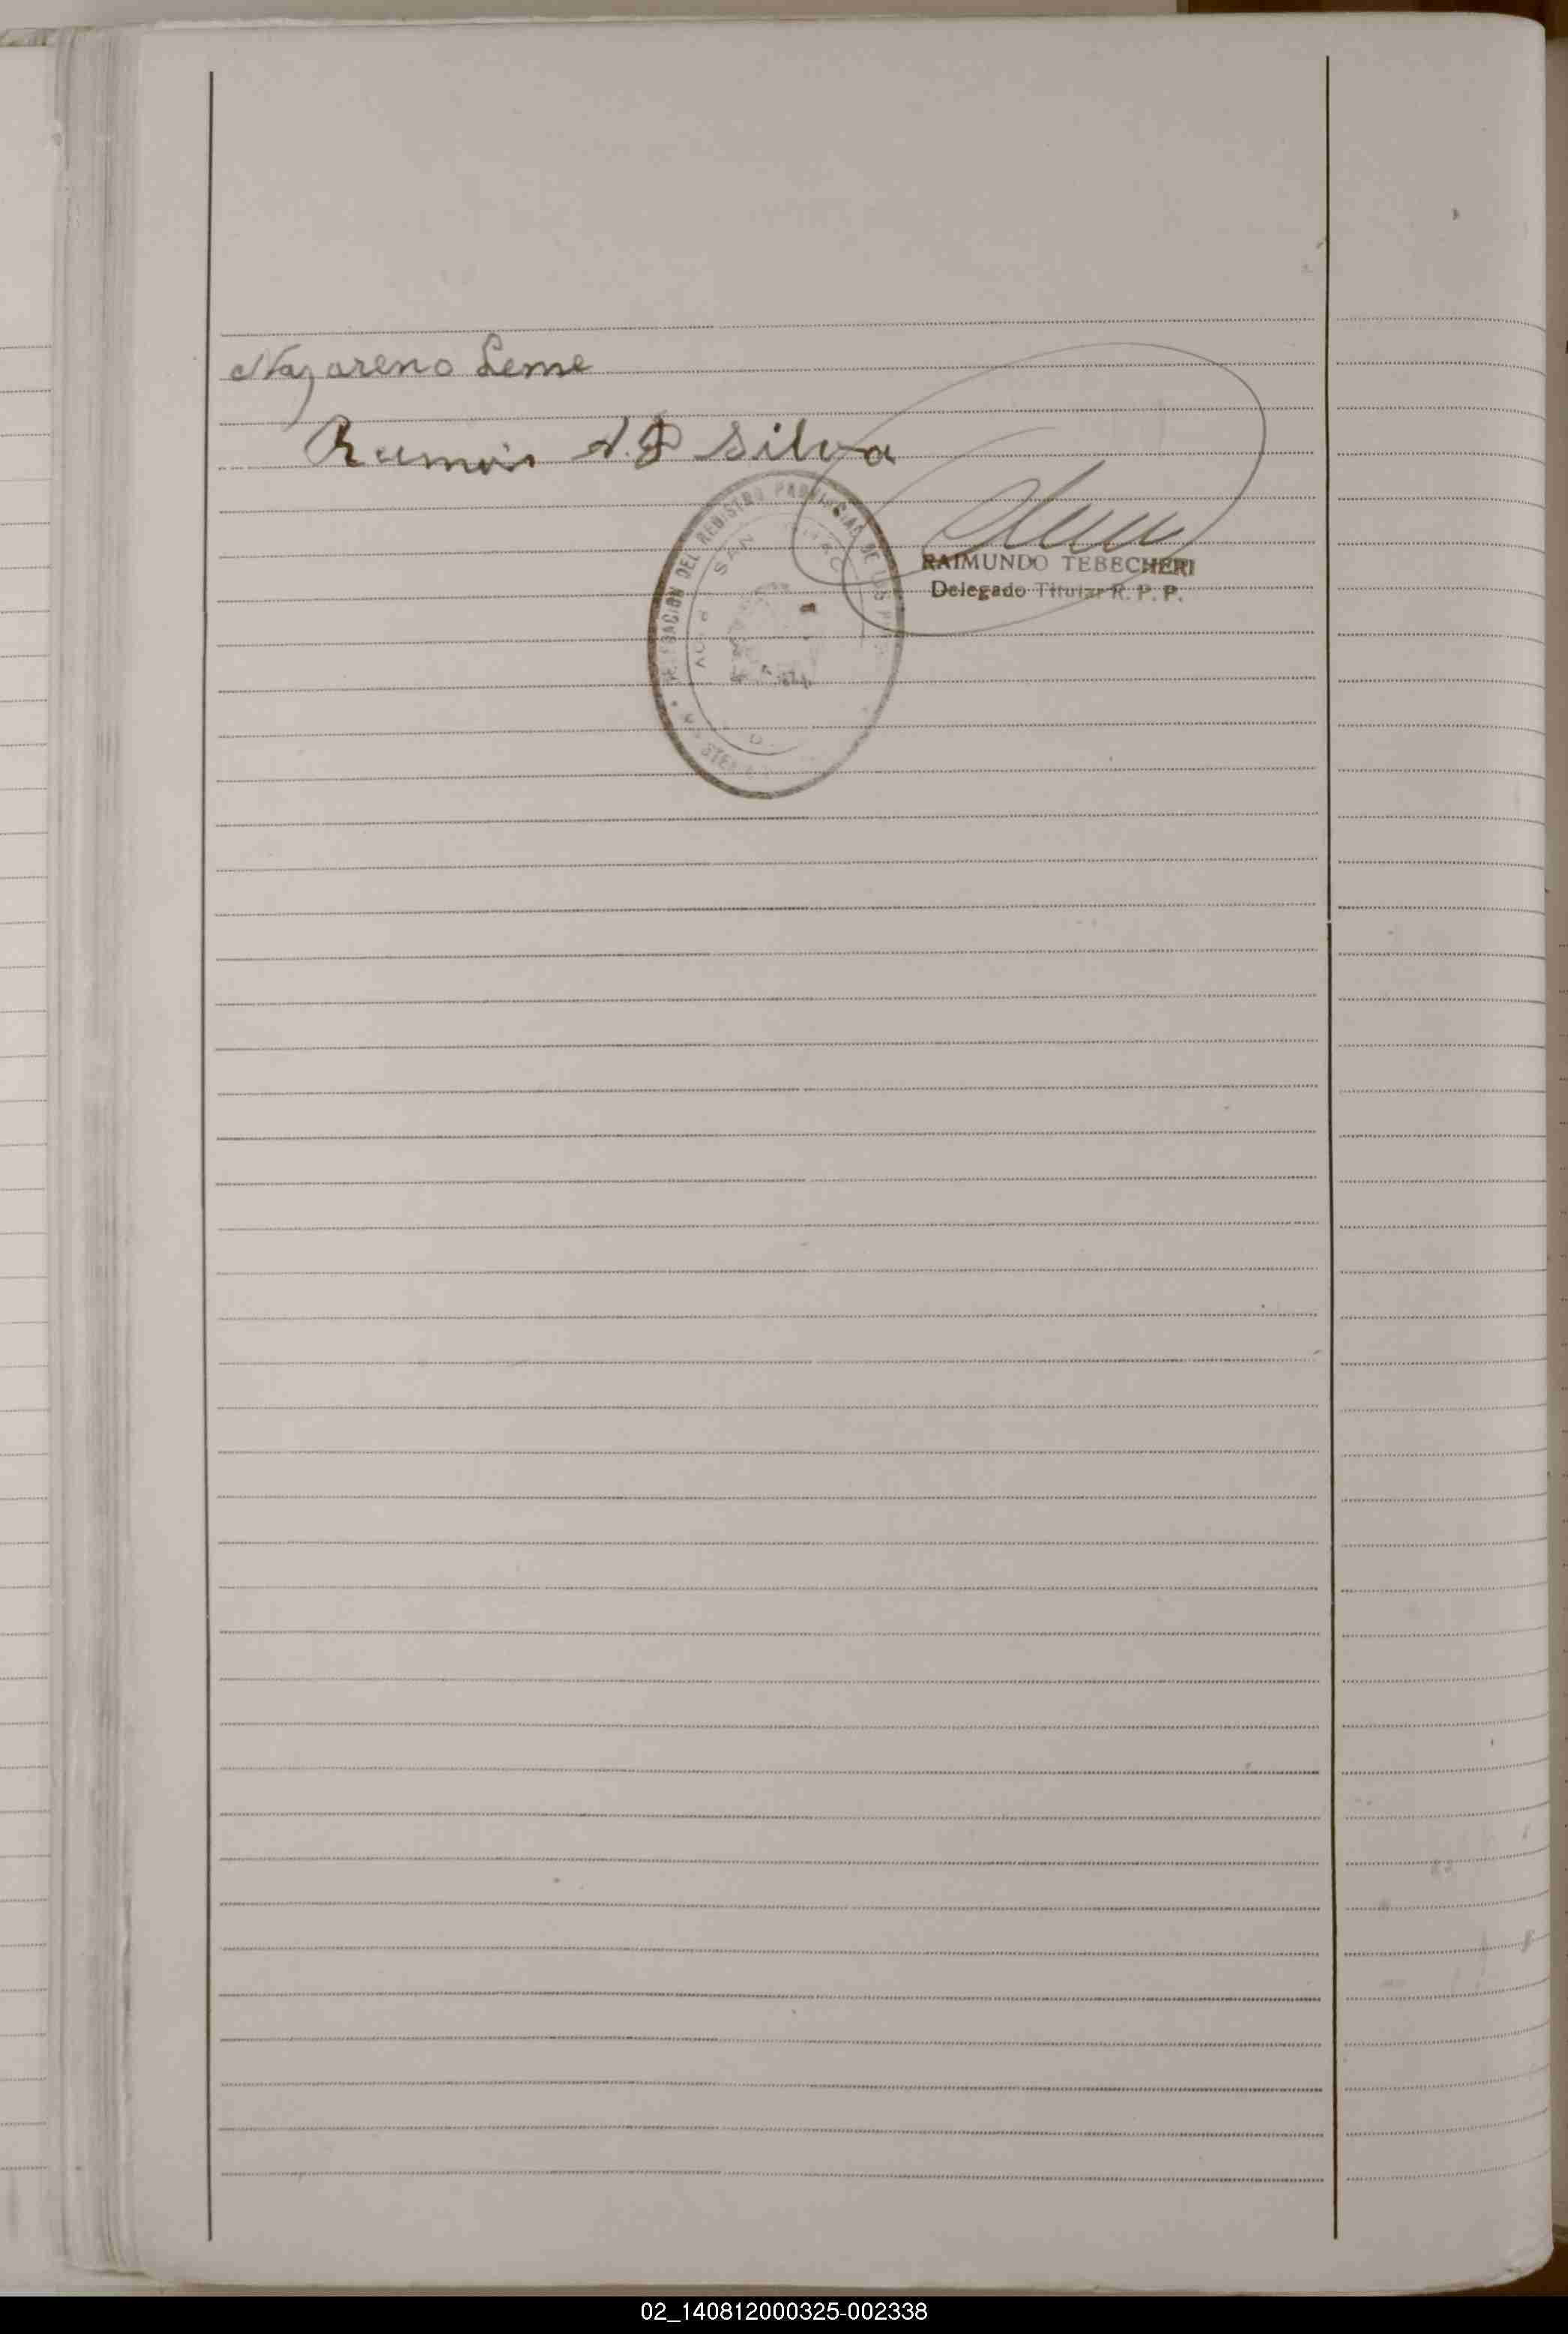 Nazareno Leme
Ramón A. P Silva
DELEGACION DEL REGISTRO PROVINCIAL DE LAS P
SAN
RAIMUNDO TEBECHERI
Delegado Titular R. P. P.
02_140812000325-002338